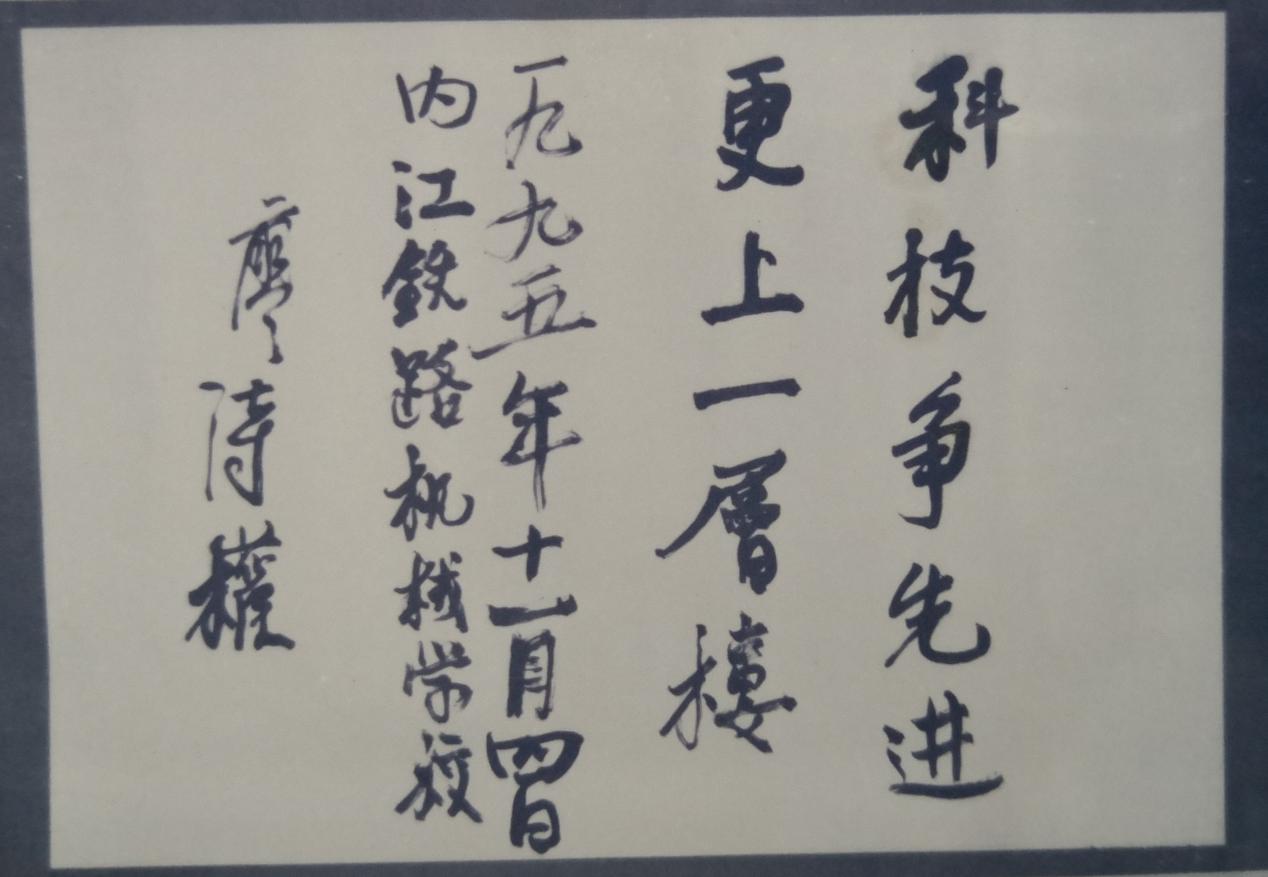 科技争先进
更上一層樓
一九九五年十一月四日
内江鉄路机械学校
廖诗權